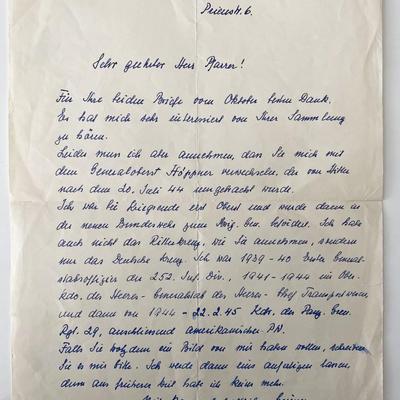 Prienstr. 6.
Sehr geehrter Herr Pfarrer!
Für Ihre beiden Briefe vom Oktober besten Dank.
Es hat mich sehr interessiert von Ihrer Sammlung
zu hören.
Leider muss ich aber annehmen, dass Sie mich mit
dem Generaloberst Höppner verwechseln, der von Hitler
nach dem 20. Juli 44 umgebracht wurde.
Ich war bei Kriegsende erst Oberst und wurde dann in
der neuen Bundeswehr zum Brig. Gen. befördert. Ich habe
auch nicht das Ritterkreuz, wie Sie annehmen, sondern
nur das Deutsche Kreuz. Ich war 1939-40 Erster General-
stabsoffizier der 252. Inf. Div., 1941-1944 im Ober-
kdo. des Heeres - Generalstab des Heeres - Chef Transportwesen
und dann von 1944 - 22.2.45 Kdr. des Pzg. Gren.
Rgt. 29, anschliessend amerikanischer PW.
Falls Sie trotzdem ein Bild von mir haben wollen, schreiben
Sie es mir bitte. Ich werde dann eins anfertigen lassen,
denn aus früherer Zeit habe ich keine mehr.